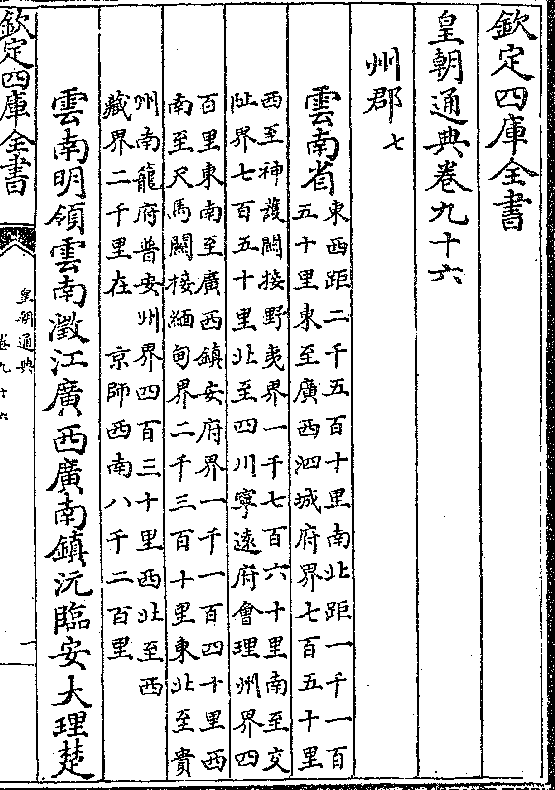 欽定四庫全書
皇朝通典卷九十六
州郡七
雲南省
東西距二千五百十里南北距一千一百
五十里東至廣西泗城府界七百五十里
西至神護關接野夷界一千七百六十里南至交
阯界七百五十里北至四川寧遠府會理州界四
百里東南至廣西鎮安府界一千一百四十里西
南至尺馬關接緬甸界二千三百十里東北至貴
州南龍府普安州界四百三十里西北至西
藏界二千里在 京師西南八千二百里
雲南明領雲南澂江廣西廣南鎮沅臨安大理楚
欽定四庫全書
皇朝通典
卷九十六
一